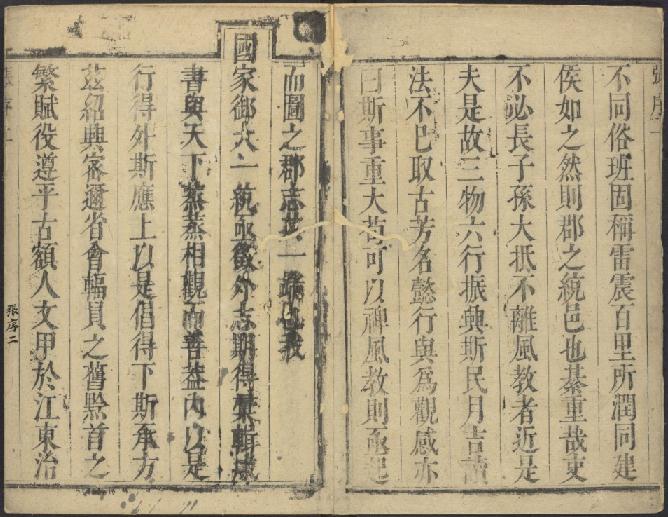 張序二
不同俗班固稱雷震百里所潤同建
侯如之然則郡之統邑也綦重哉吏
不必長子孫大抵不離風教者近是
夫是故三物六行振興斯民月吉讀
法不已取古芳名懿行與為觀感亦
曰斯事重大苟可以裨風教則亟起
而圖之郡志其一
國家御大一統亟徵外志期得彙輯成
書與天下蒸蒸相觀而善蓋內以是
行得外斯應上以是倡得下斯承方
茲紹興密邇省會幅員之舊黔首之
繁賦役遵乎古額人文甲於江東治
張序二